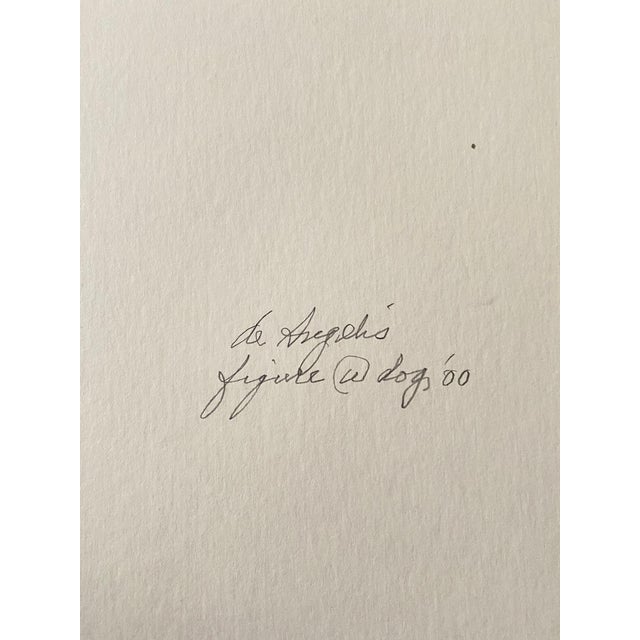 de Angelis
figure ⓦ dog, '00